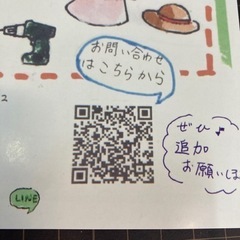 お問い合わせ
はこちらから
2
ぜひ♪
追加
お願いしま
LINE